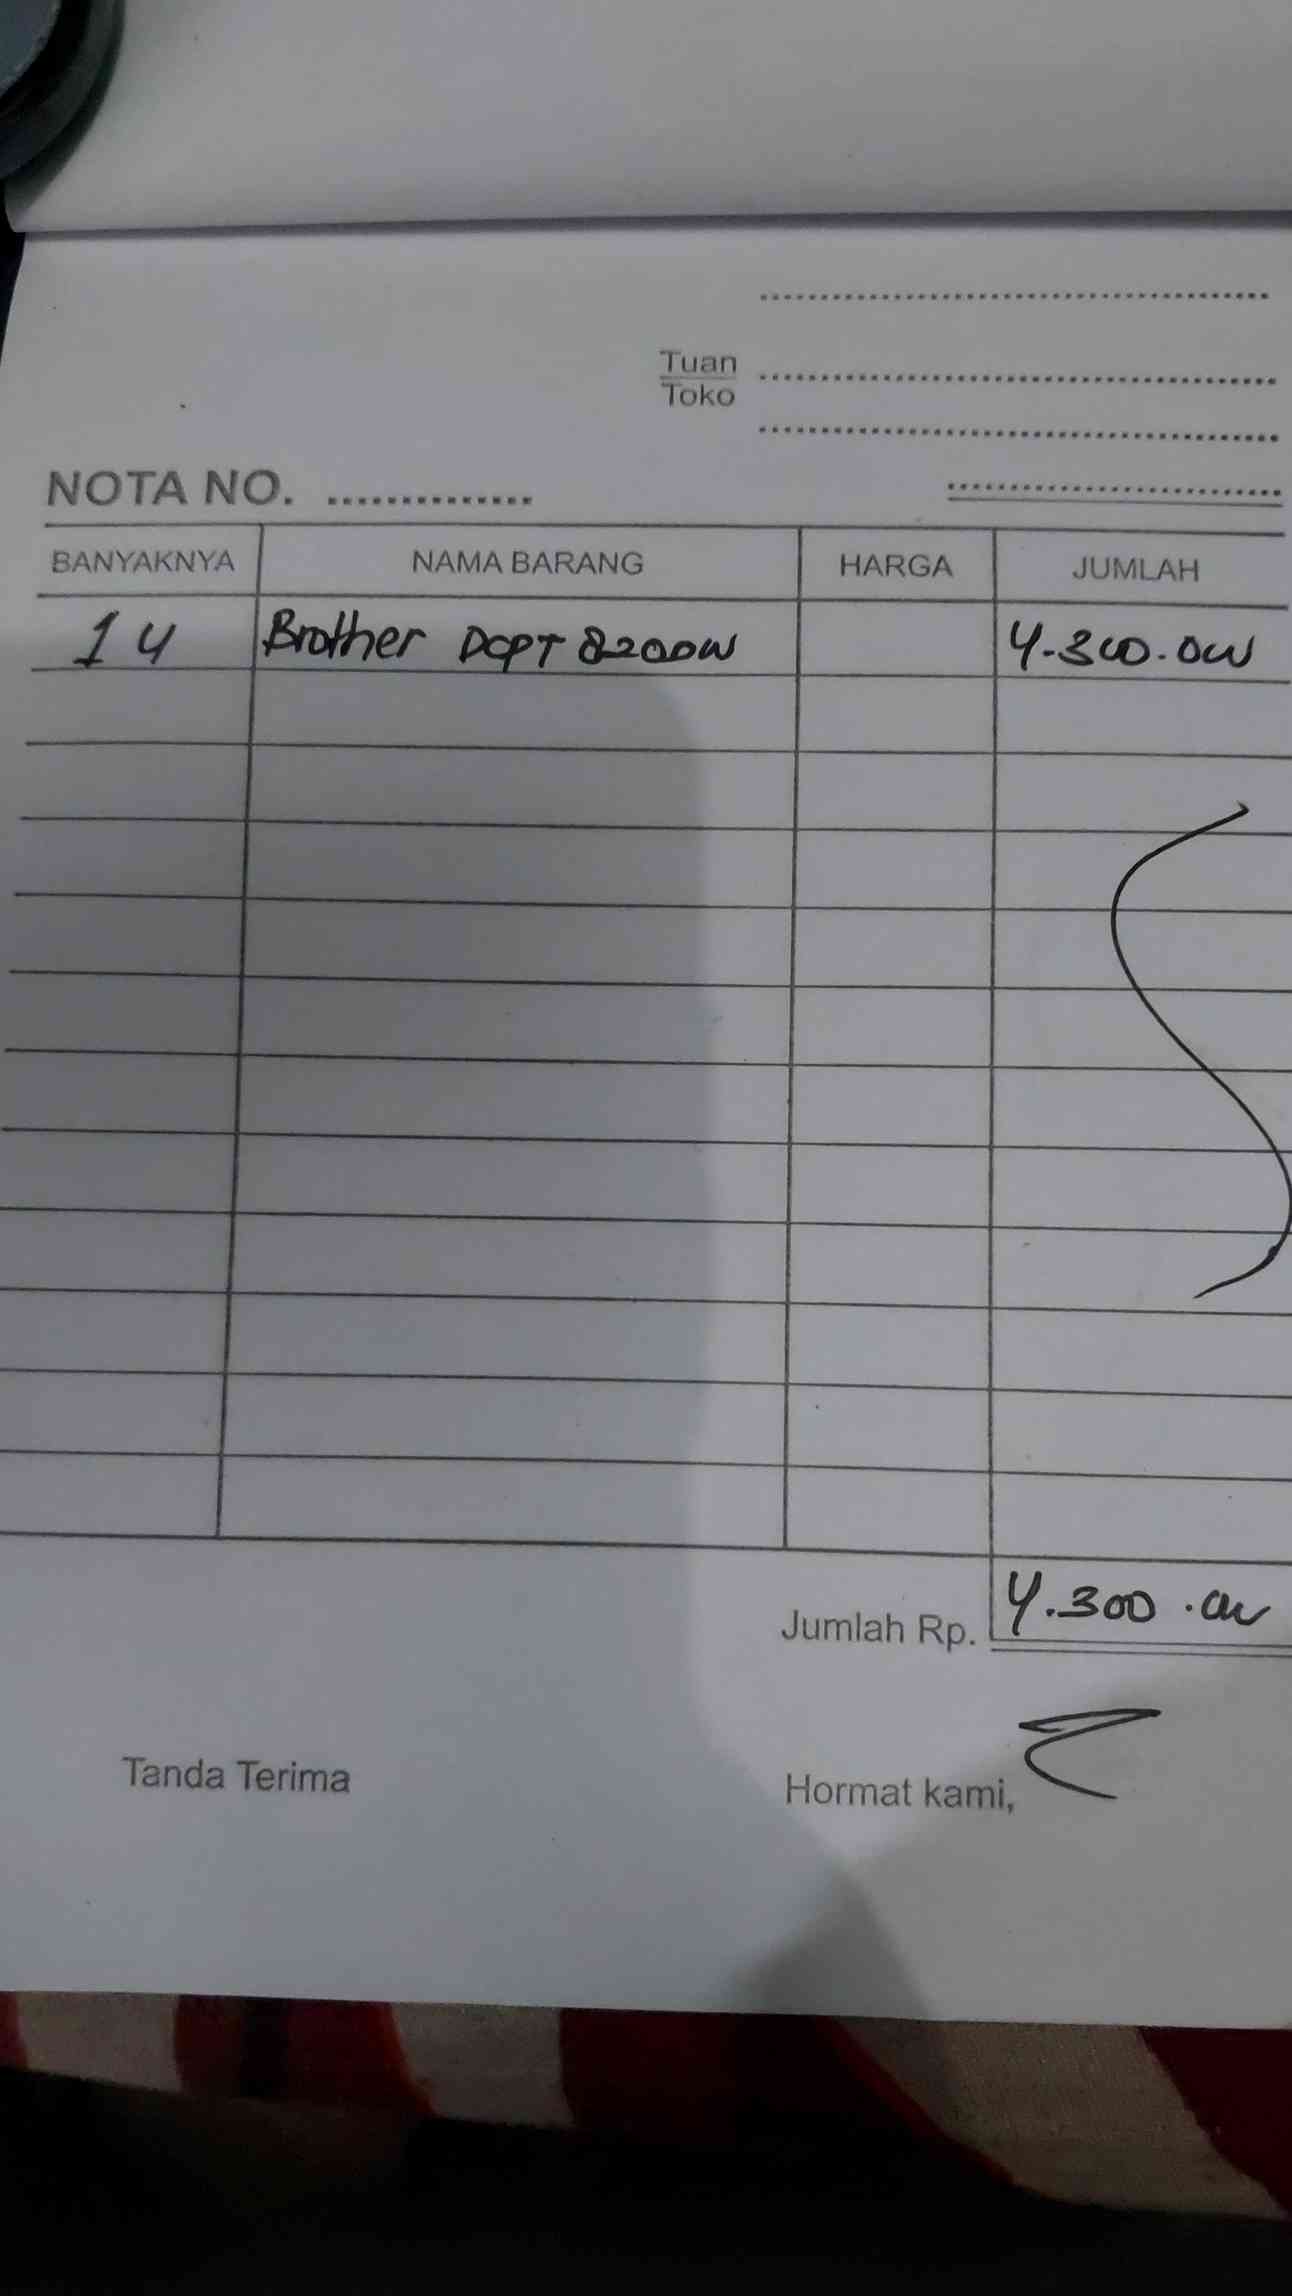 Tuan
Toko
NOTA NO. ..............
BANYAKNYA NAMA BARANG HARGA JUMLAH
1 4 Brother DCPT 8200W 4.300.000
Jumlah Rp. 4.300.000
Tanda Terima Hormat kami,